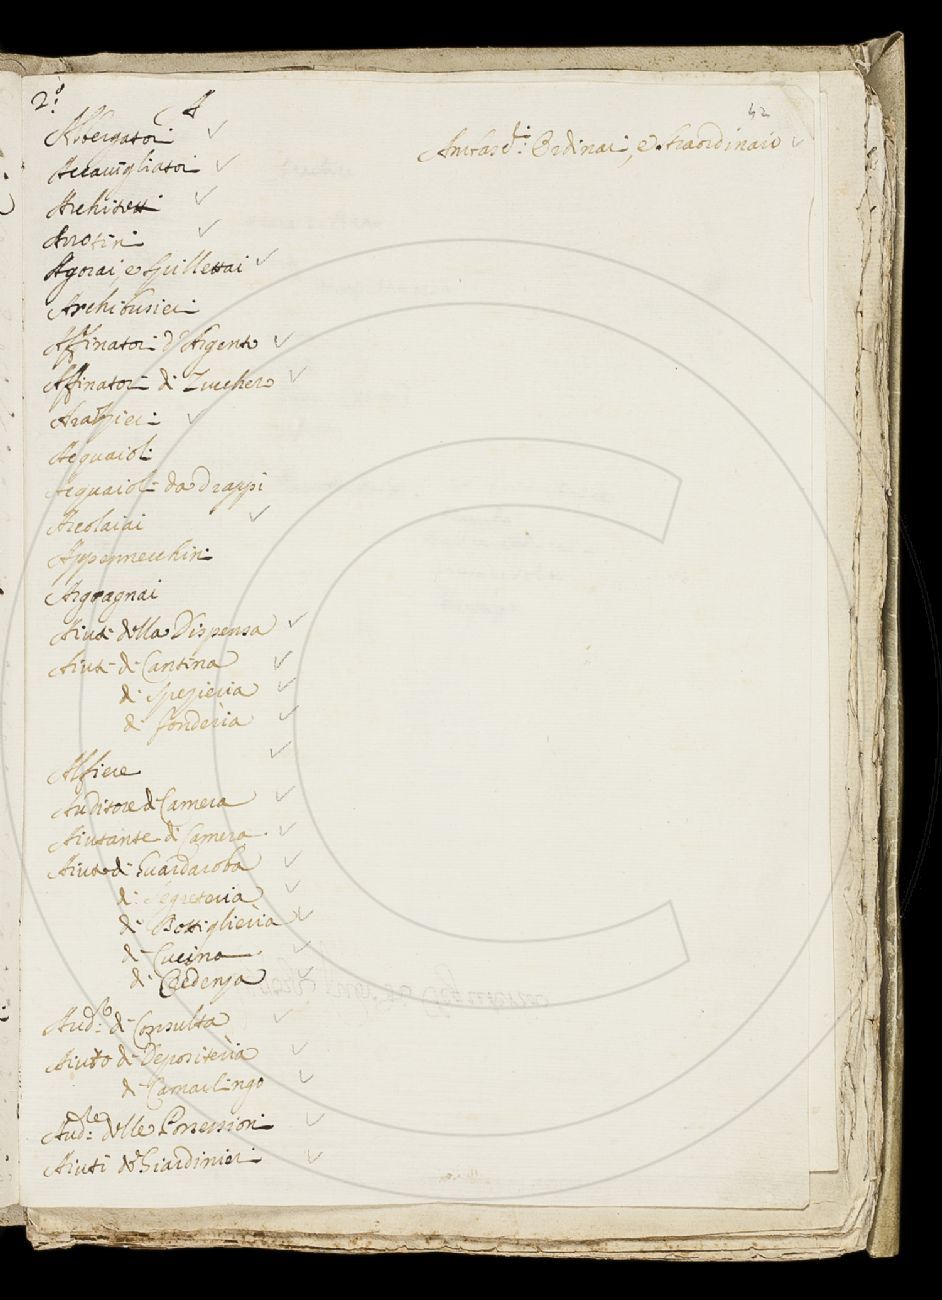 2.º
A
42
Albergatori
Accavigliatori
Architetti
Arrotini
Agorai, e Spillettai
Archibusieri
Affinatori d'Argento
Affinatori di Zucchero
Arazzieri
Acquaioli
Acquaioli da Drappi
Arcolaiai
Appennecchini
Argagnai
Aiuti della Dispensa
Aiuti di Cantina
di Spezieria
di fonderia
Alfiere
Auditore di Camera
Aiutante di Camera
Aiuto di Guardaroba
di Segreteria
di Bottiglieria
di Cucina
di Credenza
Aud.re di Consulta
Aiuto di Depositeria
di Camarlingo
Aud.re delle Possessioni
Aiuti de Giardinieri
Ambasc.ri Ordinari, e straordinario